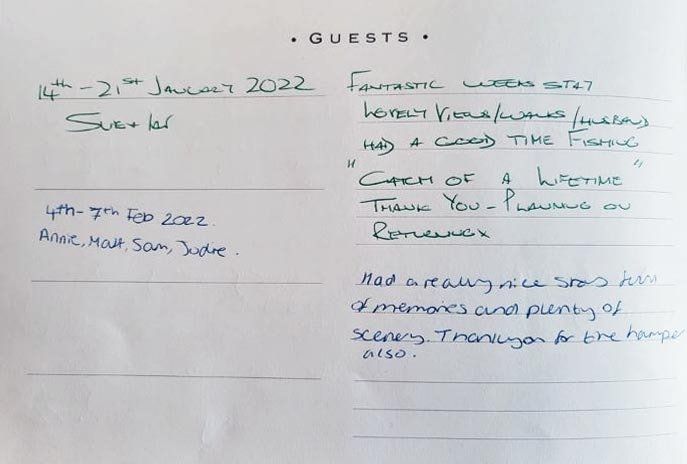 • GUESTS •
14th - 21st JANUARY 2022
SUE + IAN
FANTASTIC WEEKS STAY
LOVELY VIEWS/WALKS/HUSBAND
HAD A GOOD TIME FISHING
"CATCH OF A LIFETIME"
THANK YOU - PLANNING ON
RETURNING X
4th - 7th Feb 2022.
Annie, Matt, Sam, Jodie.
Had a really nice stay full
of memories and plenty of
scenery. Thankyou for the hamper
also.